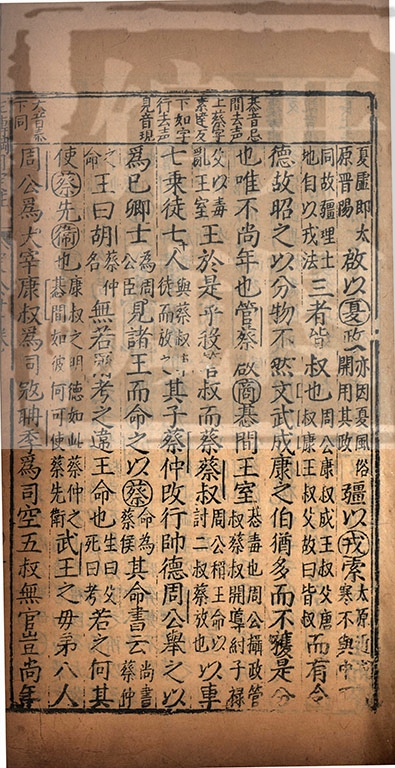 夏虛即太原晉陽啟以夏政亦因夏風俗開用其政疆以戎索太原近寒不與中
同故疆理土地自以戎法三者皆叔也周公康叔成王叔父唐叔康王叔父故曰皆叔而有令
德故昭之以分物不然文武成康之伯猶多而不獲是分
也唯不尚年也管蔡啟商惎間王室惎毒也周公攝政管叔蔡叔開導紂子祿
父以毒亂王室王於是乎殺管叔而蔡蔡叔周公稱王命以討二叔蔡放也以車
七乘徒七十人與蔡叔車徒而放之其子蔡仲改行帥德周公舉之以
爲已卿士爲周公臣見諸王而命之以蔡命為蔡侯其命書云尚書蔡仲
之命王曰胡蔡仲名無若爾考之違王命也生曰父死曰考若之何其
使蔡先衞也康叔之明德如此蔡仲之惎間如彼何可使蔡先衛武王之母弟八人
周公爲大宰康叔爲司寇聃季爲司空五叔無官豈尚年
惎音忌
間去声
上蔡字
素達反
下如字
行去声
見音現
大音泰
下同